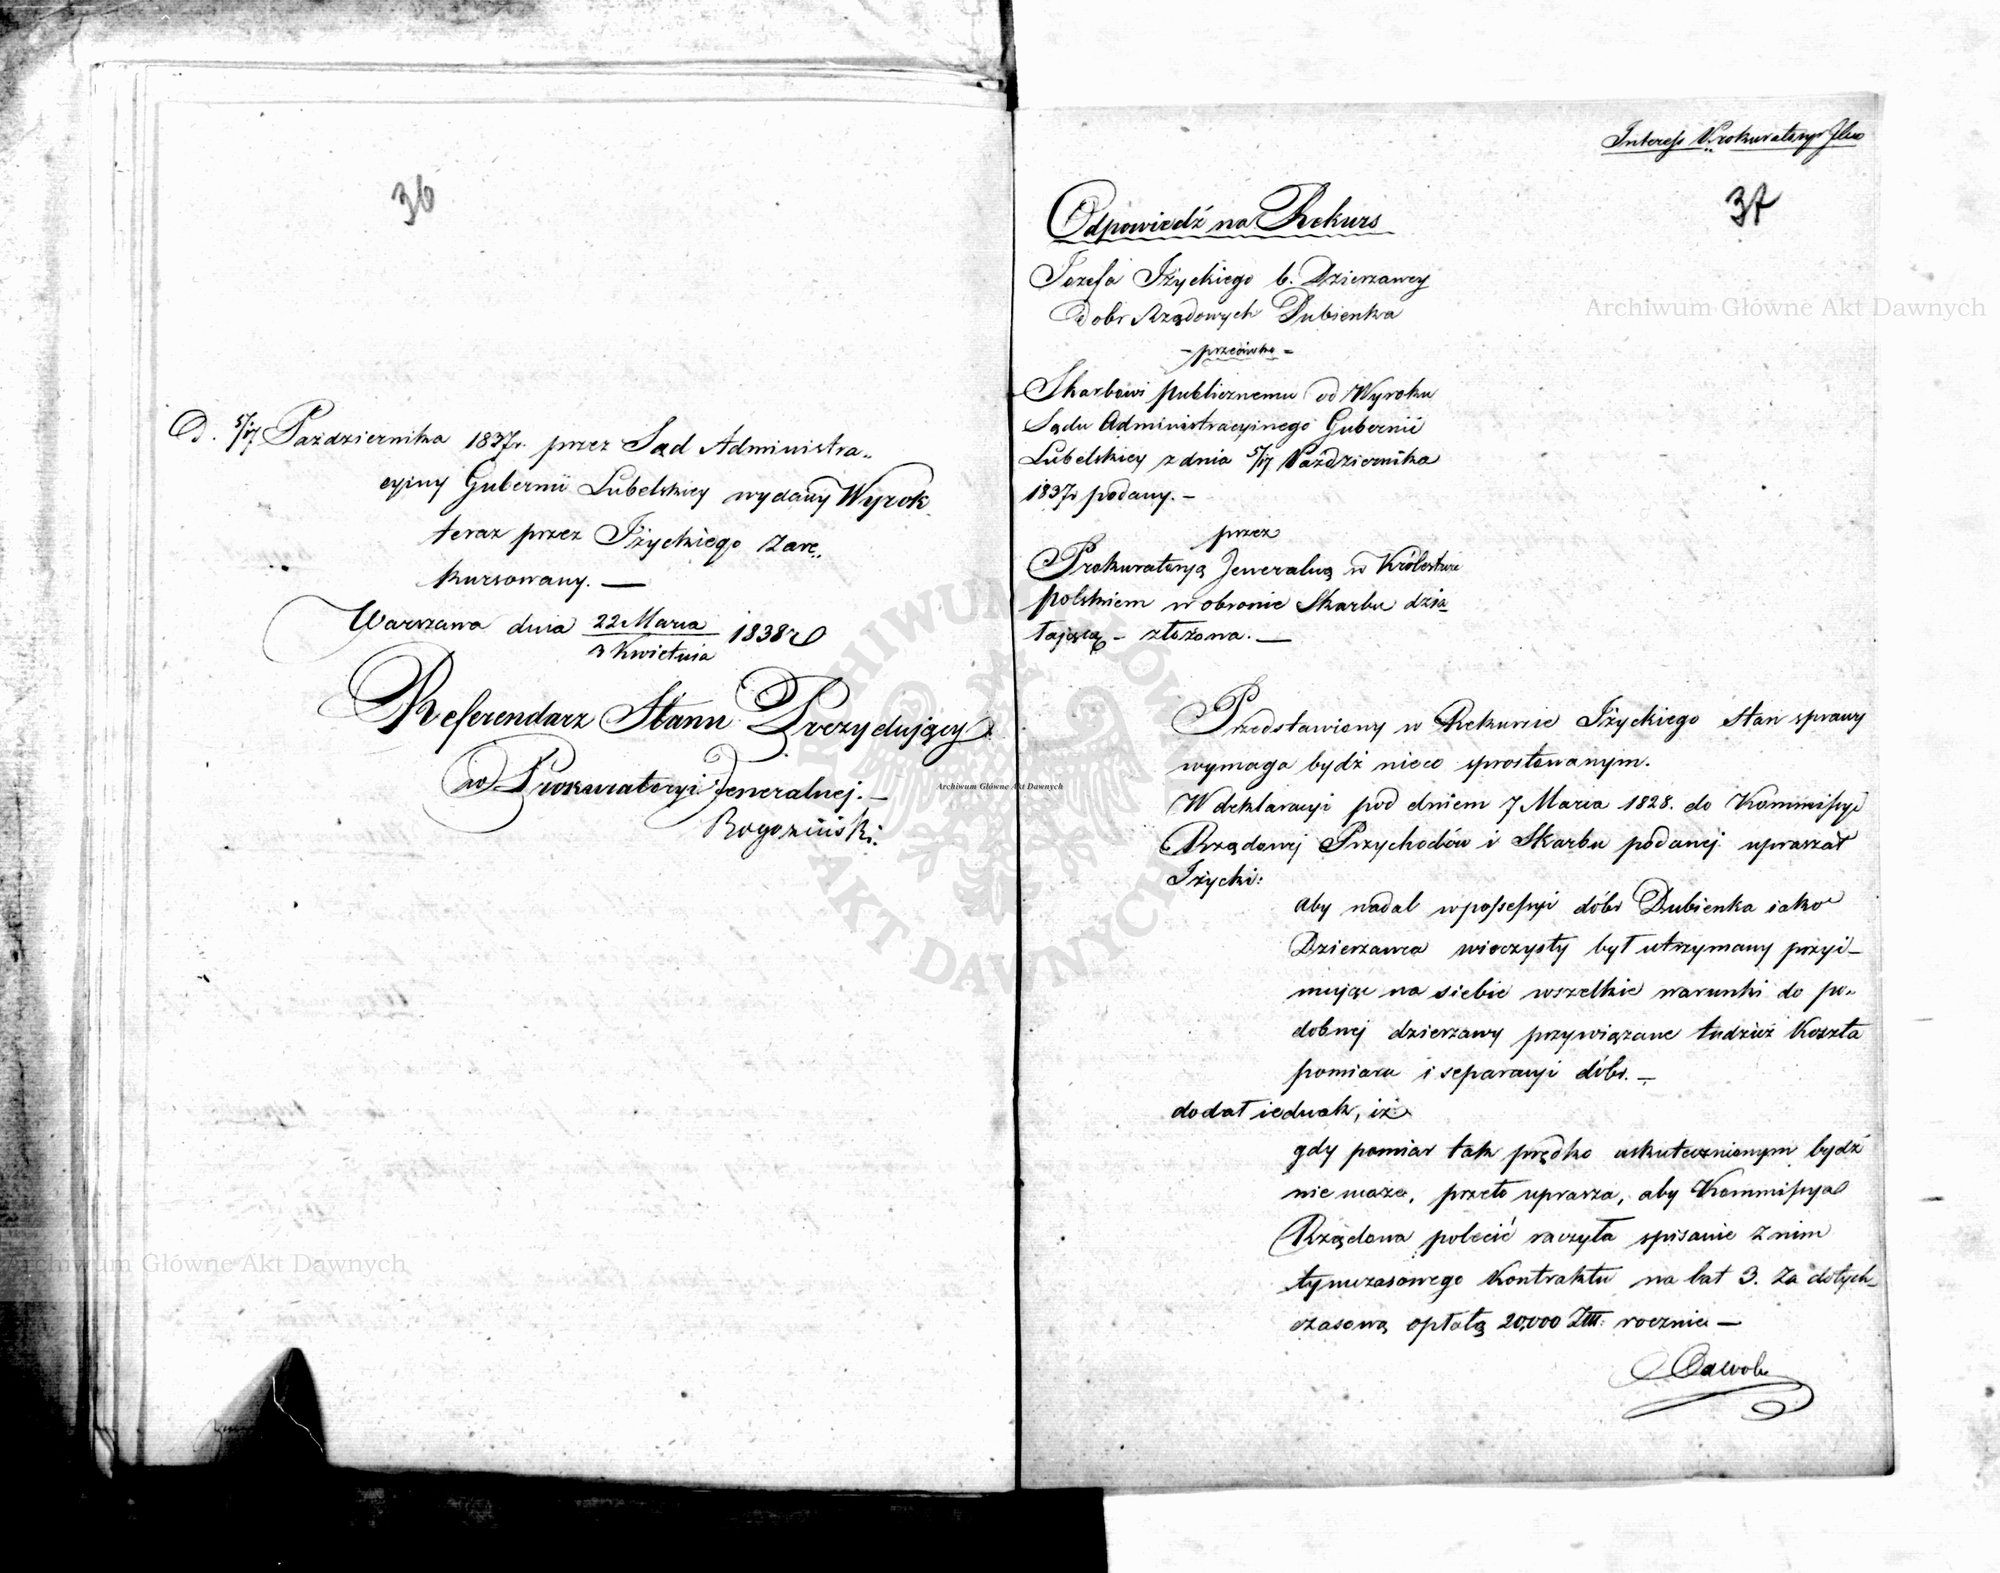 36
D. 5/17 Października 1837r. przez Sąd Administra„
cyjny Gubernii Lubelskiey wydany Wyrok
teraz przez Iżyckiego zare„
kursowany. —
Warszawa dnia 22 Marca / 3 Kwietnia 1838 r
Referendarz Stanu Prezydujący
w Prokuratoryi Jeneralnej. —
Rogoziński.
Interess Prokuratoryi
37
Odpowiedź na Rekurs
Jozefa Iżyckiego b. Dzierzawcy
Dobr Rządowych Dubienka
- przeciwko -
Skarbowi publicznemu od Wyroku
Sądu Administracyinego Gubernii
Lubelskiey z dnia 5/17 Października
1837r podany. -
przez
Prokuratoryą Jeneralną w Królestwie
polskiem w obronie Skarbu dzia
łającą - złożona. —
Przedstawiony w Rekursie Iżyckiego Stan sprawy
wymaga bydź nieco sprostowanym.
W deklaracyi pod dniem 7 Marca 1828. do Kommissyi
Rządowej Przychodów i Skarbu podanej upraszał
Iżycki:
aby nadal w possessyi dóbr Dubienka iako
Dzierzawca wieczysty był utrzymany przyi-
mując na siebie wszelkie warunki do po„
dobnej dzierzawy przywiązane tudzież Koszta
pomiaru i separacyi dóbr. —
dodał iednak, iż
gdy pomiar tak prędko uskutecznionym bydź
nie może, przeto uprasza, aby Kommissya
Rządowa polecić raczyła spisanie z nim
tymczasowego Kontraktu na lat 3. za dotych-
czasową opłatą 20,000 Złł: rocznie —
Archiwum Główne Akt Dawnych
Archiwum Główne Akt Dawnych
Archiwum Główne Akt Dawnych
ARCHIWUM GŁÓWNE AKT DAWNYCH